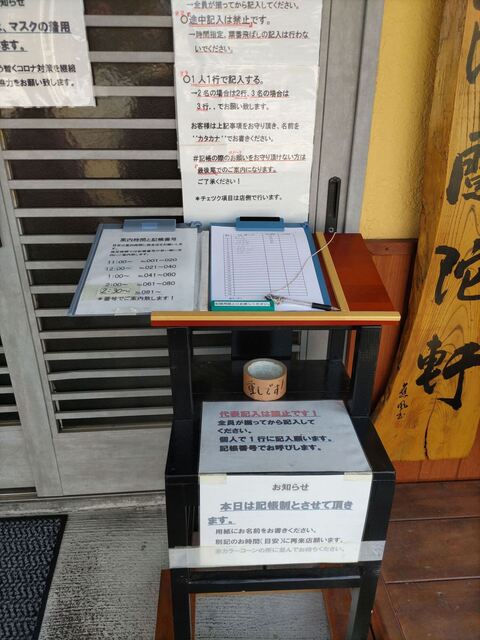 お知らせ
、マスクの着用
コロナ対策を継続
協力をお願い致します。
→全員が揃ってから記入してください。
○途中記入は禁止です。
→時間指定、順番飛ばしの記入は行わ
ないでください。
○1人1行で記入する。
→2名の場合は2行、3名の場合は
3行、、でお願い致します。
お客様は上記事項をお守り頂き、名前を
"カタカナ"でお書きください。
#記帳の際のお願いをお守り頂けない方は
最後尾でのご案内になります。
ご了承ください!
*チェック項目は店側で行います。
案内時間と記帳番号
11:00~ No.001~020
12:00~ No.021~040
1:00~ No.041~060
2:00~ No.061~080
2:30~ No.081~
*番号でご案内致します!
代表記入は禁止です!
全員が揃ってから記入して
ください。
個人で1行に記入願います。
記帳番号でお呼びします。
お知らせ
本日は記帳制とさせて頂き
ます。
用紙にお名前をお書きください。
別記のお時間(目安)に再来店願います。
※カラーコーンの所に並んでお待ちください。
陀
軒